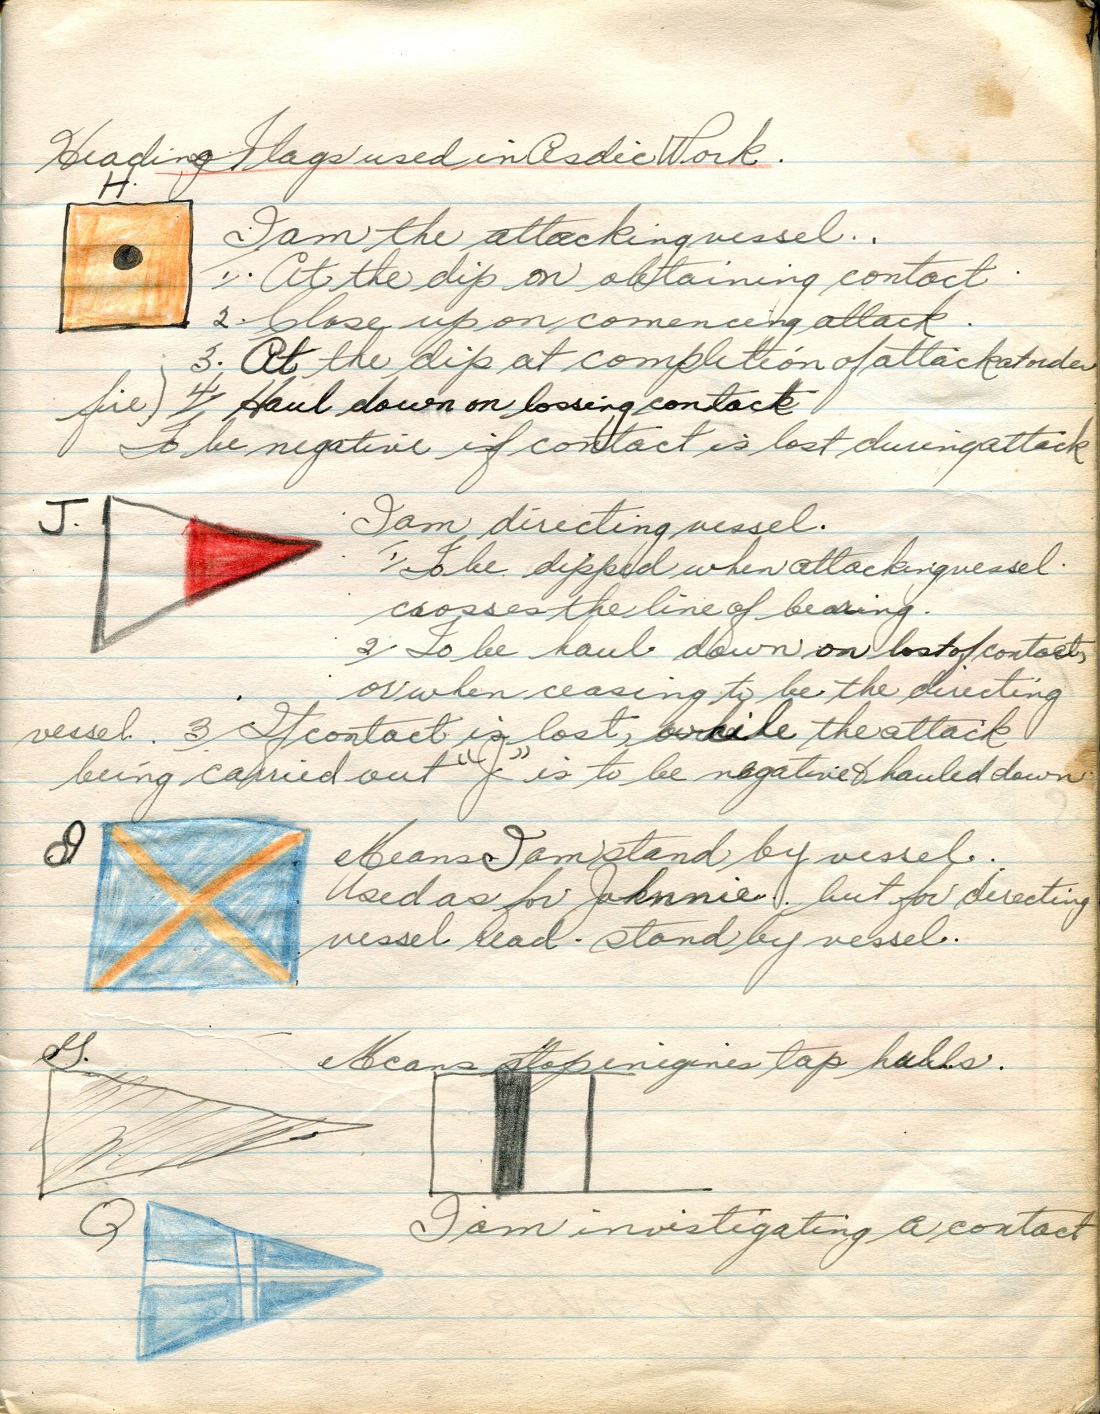 Heading Flags used in Asdic Work.
H.
I am the attacking vessel..
1. At the dip on obtaining contact.
2. Close up on comencing attack.
3. At the dip at completion of attack at order
fire) 4, Haul down on lossing contact
To be negative if contact is lost during attack
J. I am directing vessel.
1, To be dipped when attacking vessel.
crosses the line of bearing.
2, To be haul down on lost of contact,
or when ceasing to be the directing
vessel. 3, If contact is lost, while the attack
being carried out "J" is to be negative & hauled down
Means I am stand by vessel.
Used as for Johnnie.. but for directing
vessel read. stand by vessel.
Means stop inigines tap hulls.
Q I am investigating a contact